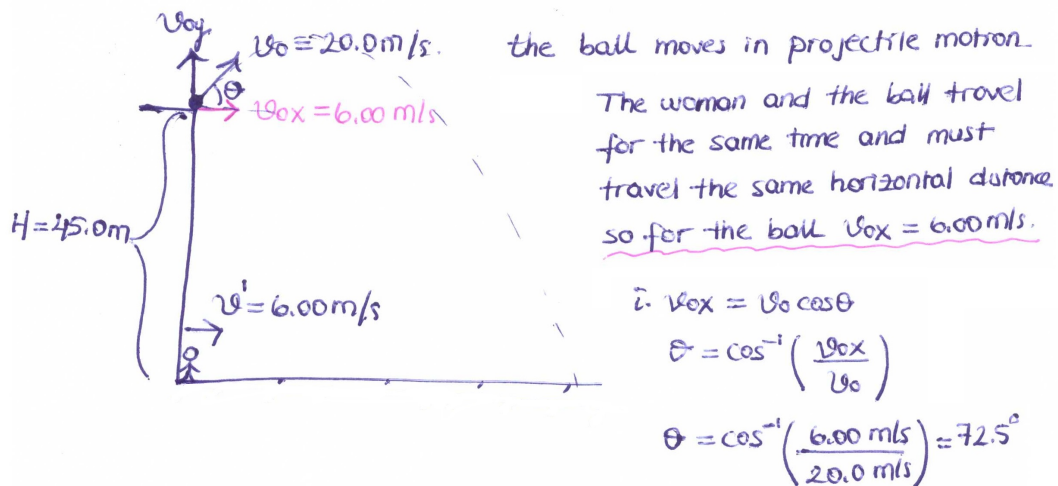 v₀y
v₀ = 20.0 m/s.
θ
v₀x = 6.00 m/s
H = 45.0 m
v' = 6.00 m/s
the ball moves in projectile motion
The woman and the ball travel
for the same time and must
travel the same horizontal distance
so for the ball v₀x = 6.00 m/s.
i. v₀x = v₀ cosθ
θ = cos⁻¹ (v₀x / v₀)
θ = cos⁻¹ (6.00 m/s / 20.0 m/s) = 72.5°